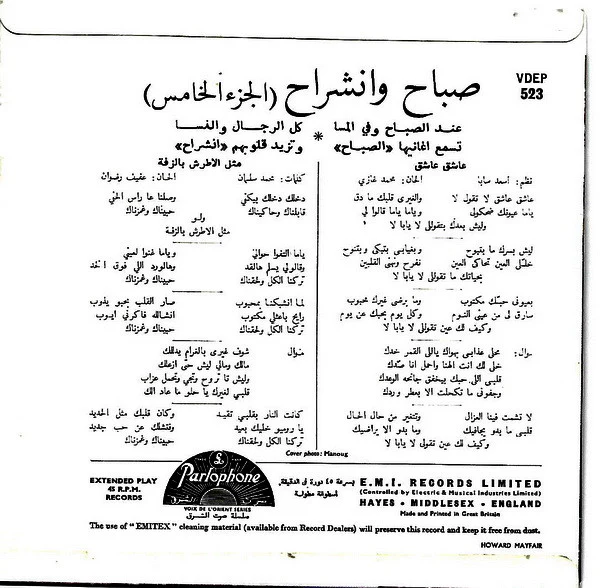 VDEP
523
صباح وانشراح (الجزء الخامس)
عند الصباح وفي المسا * كل الرجال والنسا
تسمع اغانيها «الصباح» وتزيد قلوبهم «انشراح»
عاشق عاشق
نظم: أسعد سابا الحان: محمد غازي
عاشق عاشق لا تقول لا والغيرى قلبك ما دق
ياما عيونك ضحكولي وياما ياما قالوا لي
وليش بعدك بتقوللي لا يابا لا
ليش بسرك ما بتبوح وبغيابي بتبكي وبتنوح
خللي العين تحاكي العين نفرح ونهني القلبين
بحياتك ما تقوللي لا يابا لا
بعيوني حبك مكتوب وما يرضى غيرك محبوب
سارق لي من عيني النوم وكل يوم بحبك عن يوم
وكيف لك عين تقوللي لا يابا لا
موال: محلى عذابي بهواك ياللي القمر خدك
خلي لك انت الهنا واحمل انا صدك
قلبي اللي حبك بيخفق جانحه الوعدك
وجفوني ما تكحلت الا بعطر وردك
لا تشمت فينا العزال وتتغير من حال الحال
قلبي ما بدو يجافيك وما بدو الا يراضيك
وكيف لك عين تقوللي لا يابا لا
مثل الاطرش بالزفة
كلمات: محمد سلمان الحان: عفيف رضوان
دخلك دخلك بيكفي وصلنا عا راس الحفي
قابلناك وحاكيناك حبيناك وغمزناك
ولو
مثل الاطرش بالزفة
ياما التفوا حوالي وياما غنوا لعيني
وقالولي يسلم هالقد وهالورد اللي فوق الخد
تركنا الكل ولحقناك حبيناك وغمزناك
لما انشبكنا بمحبوب صار القلب بحبو يدوب
رايح باعتلي مكتوب انشالله فاكرني ايوب
تركنا الكل ولحقناك حبيناك وغمزناك
موال شوف غيري بالغرام يدللك
مالك ومالي ليش حتى ازعلك
وليش تا تروح وتجي وتحمل عزاب
قلبي لغيرك يا حلو ما عاد الك
كانت النار بقلبي تقيد وكان قلبك مثل الحديد
يا روميو خليك بعيد وفتشلك عن حب جديد
تركنا الكل ولحقناك حبيناك وغمزناك
Cover photo: Manoug
EXTENDED PLAY
45 R.P.M.
RECORDS
Parlophone
VOIX DE L'ORIENT SERIES
سلسلة صوت الشرق
بسرعة ٤٥ دورة في الدقيقة
اسطوانة مطولة
E.M.I. RECORDS LIMITED
(Controlled by Electric & Musical Industries Limited)
HAYES • MIDDLESEX • ENGLAND
Made and Printed in Great Britain
The use of "EMITEX" cleaning material (available from Record Dealers) will preserve this record and keep it free from dust.
HOWARD MAYFAIR